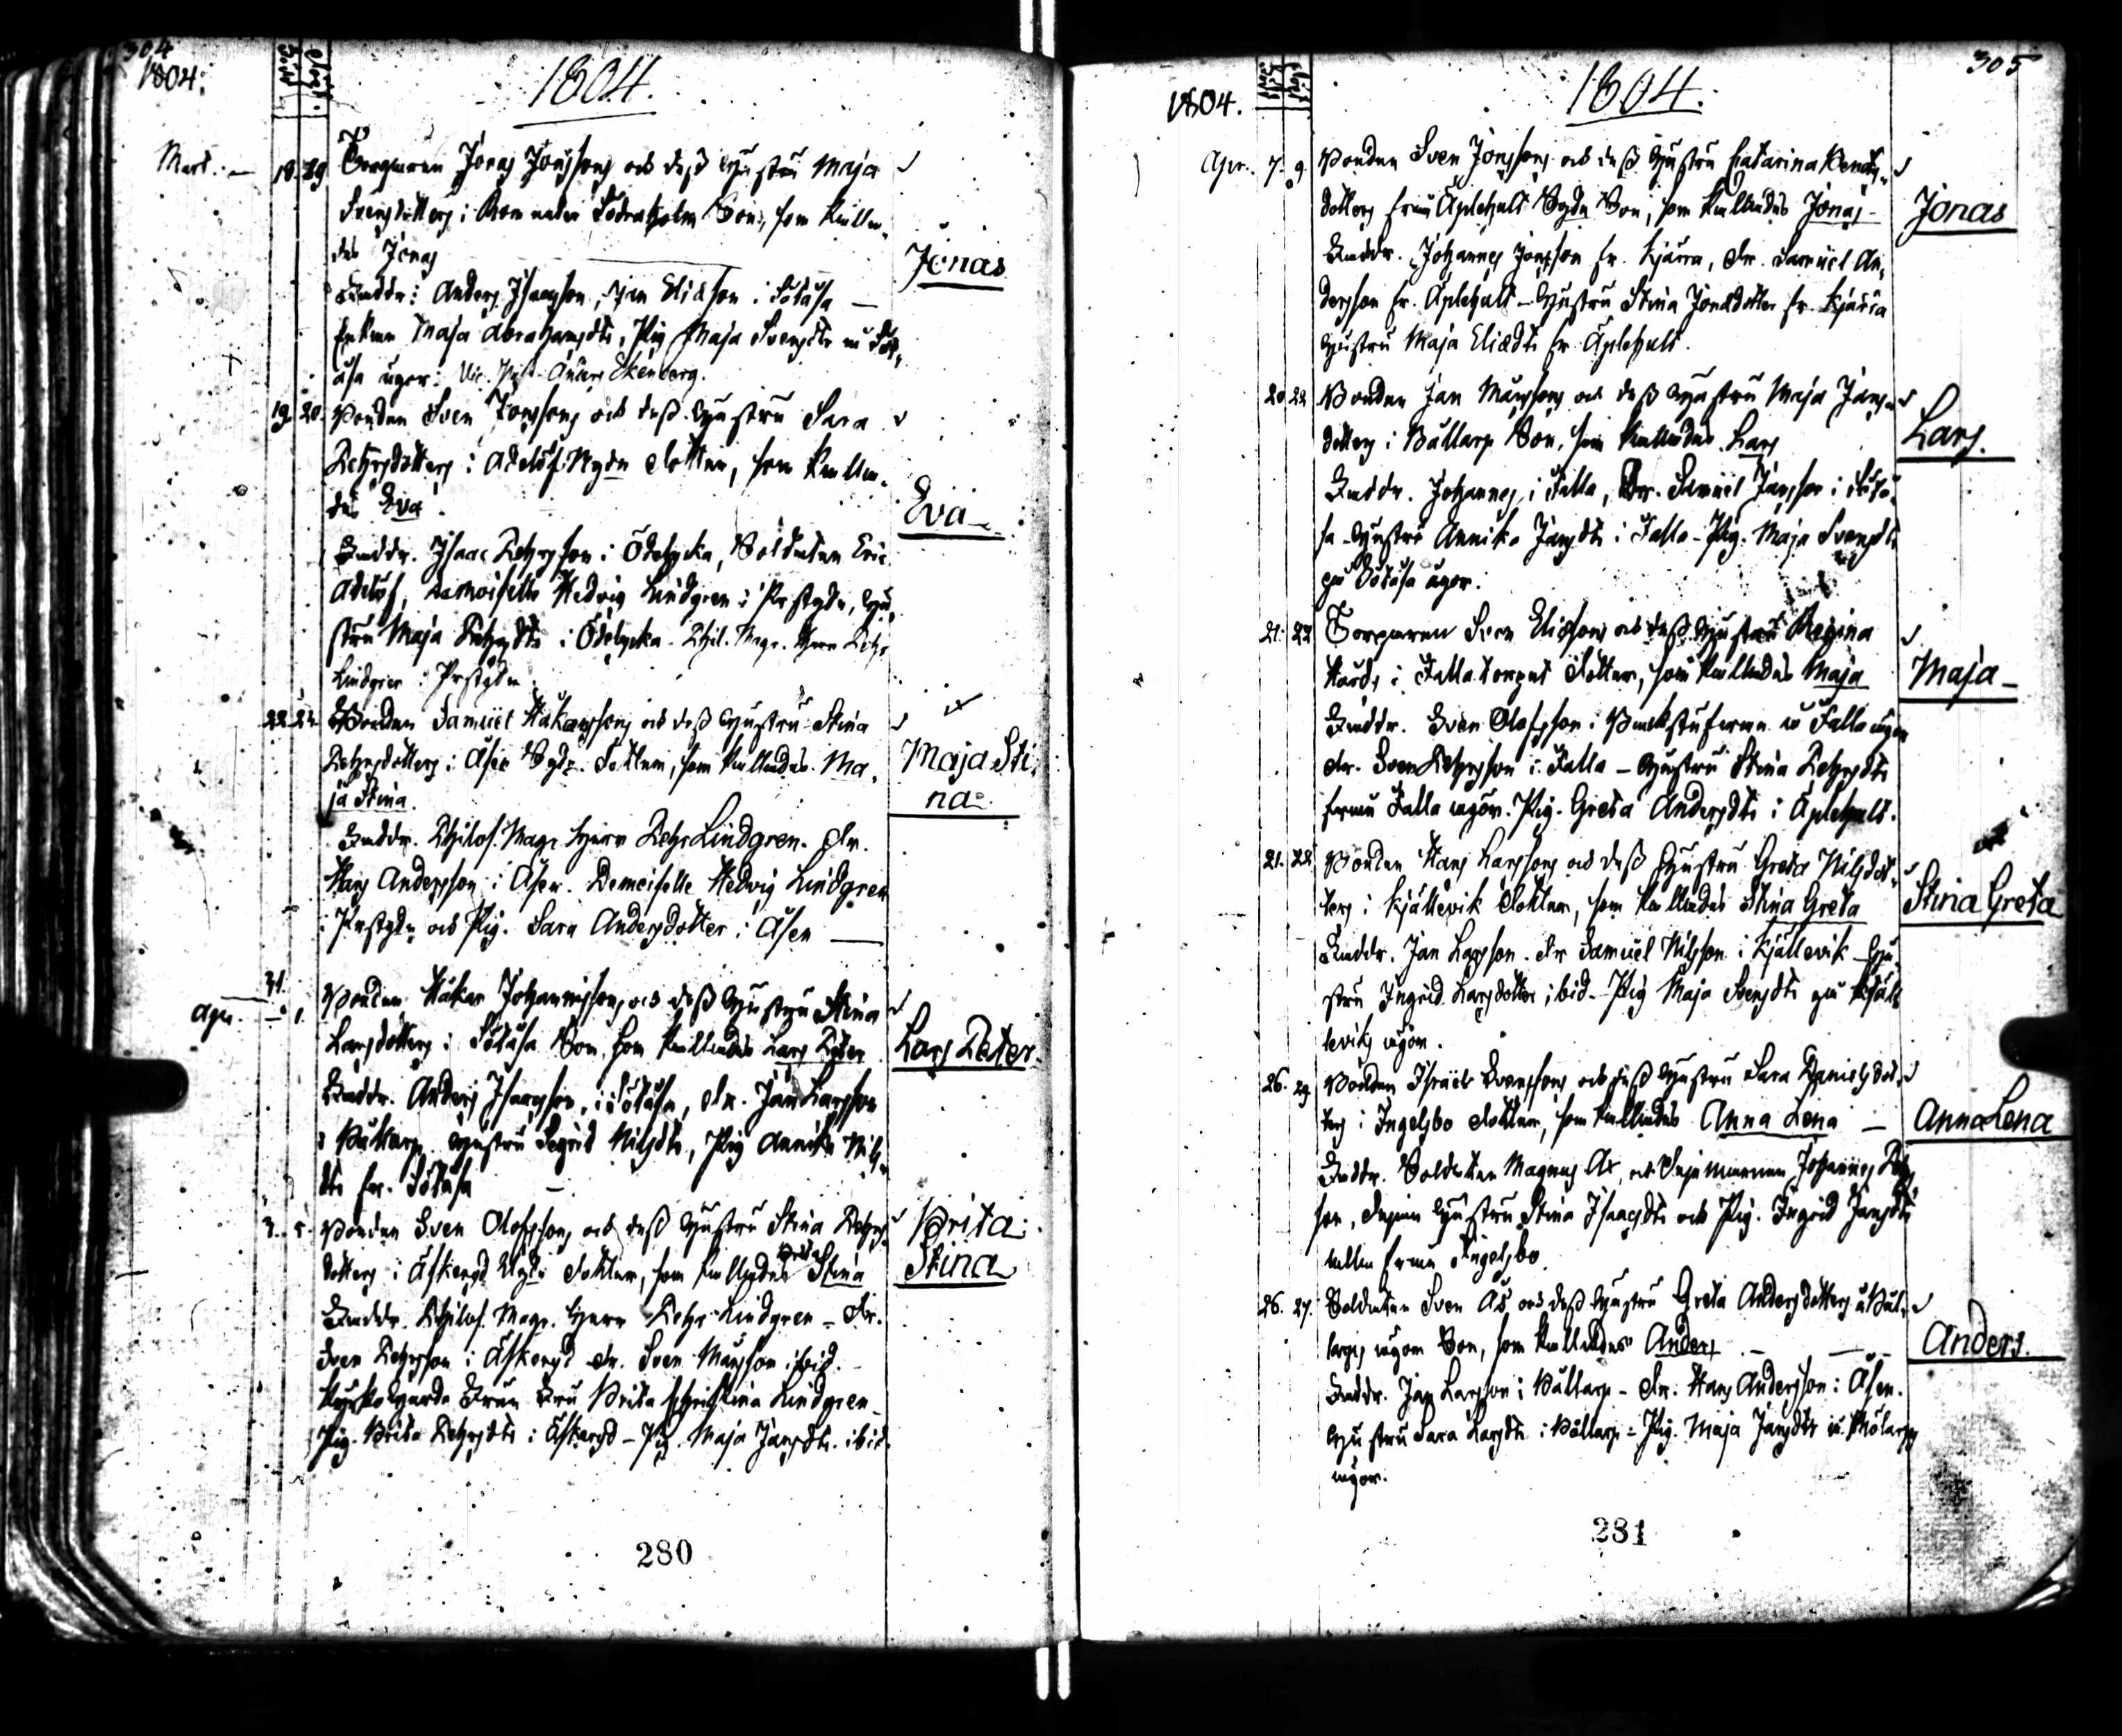 304
1804.
född
döpt
1804.
Mart. 18. 19. Torparen Jonas Jonssons och dess Hustru Maja
Svensdotters i Södraholm Son, som kalla-
des Jonas
Jonas
Faddr: Anders Isaacson, Jan Eliæson i Götåsa
Enkan Maja Abrahamsdtr, Pig Maja Svensdtr
åsa ägor: Anders Ekenberg.
19. 20. Bonden Sven Jonssons och dess Hustru Sara
Petersdotters i Adelöf Nyde Dotter, som kalla-
des Eva.
Eva
Faddr. Isaac Petersson i Ödebycka, Soldaten Eric
Adelöf, Demoiselle Hedvig Lindgren i Prstgdn, Hu-
stru Maja Petersdtr i Ödebycka. Phil. Magr. Herr Petr
Lindgren i Prstgdn
22. Bonden Samuel Håkanssons och dess Hustru Stina
Petersdotters i Åsen Sgdn. Dotter, som kallades Ma-
ja Stina.
Maja Sti-
na
Faddr. Philos. Magr Herr Petr Lindgren. Dr.
Hans Andersson i Åsen. Demoiselle Hedvig Lindgren
i Prstgdn och Pig. Sara Andersdotter i Åsen
31.
Apr. 1. Bonden Håkan Johannissons och dess Hustru Stina
Larsdotters i Götåsa Son som kallades Lars Peter
Lars Peter.
Faddr. Anders Isaacsson, i Götåsa, Dr. Jan Larsson
i Bållarp Hustru Segrid Nilsdtr, Pig Annika Nils-
dtr fr. Götåsa
3. 5. Bonden Sven Olofssons och dess Hustru Stina Peters-
dotters i Äskeryd Dotter, som kallades Brita Stina
Brita
Stina
Faddr. Philos. Magr. Herr Petr Lindgren - Dr.
Sven Petersson i Äskeryd Dr. Sven Månsson ibid.
Fru Brita Christina Lindgren
Pig. Brita Petersdtr i Äskeryd - Pig. Maja Jansdtr. ibid.
280
305
1804.
född
döpt
1804.
Apr. 7. 9. Bonden Sven Jonssons och dess Hustru Catarina Bengts-
dotters från Äplehult Sgdn Son, som kallades Jonas
Jonas
Faddr. Johannes Jonsson fr. Kjärra, Dr. Samuel An-
dersson fr. Äplehult - Hustru Stina Jonsdotter fr. Kjärra
Hustru Maja Eliædtr fr. Äplehult.
20. 22. Bonden Jan Månssons och dess Hustru Maja Jans-
dotters i Bållarp Son, som kallades Lars
Lars.
Faddr. Johannes i Falla, Dr. Samuel Jansson i Götå-
sa - Hustru Annika Jansdtr i Falla - Pig. Maja Svensdtr
på Götåsa ägor.
21. 22. Torparen Sven Eliæsons och dess Hustru Regina
Hård, i Falla torpet Dotter, som kallades Maja
Maja
Faddr. Sven Olofsson i Backstufwan å Falla ägor
Dr. Sven Petersson i Falla - Hustru Stina Petersdtr
från Falla ägor. Pig. Greta Andersdtr i Äplehult.
21. 22. Bonden Hans Larssons och dess Hustru Greta Nilsdot-
ters i Kjällevik Dotter, som kallades Stina Greta
Stina Greta
Faddr. Jan Larsson. Dr Samuel Nilsson i Kjällevik - Hu-
stru Ingrid Larsdotter ibid. - Pig Maja Svensdtr på Kjäll-
eviks ägor.
26. 29. Bonden Israel Svenssons och dess Hustru Sara Danielsdot-
ters i Ingelsbo Dotter, som kallades Anna Lena
Anna Lena
Faddr. Soldaten Magnus Ax, och Johannes Peters-
son, Hustru Stina Isaacsdtr och Pig. Ingrid Jansdtr
alla från Ingelsbo.
26. 27. Soldaten Sven Ås och dess Hustru Greta Andersdotters å Bål-
larps ägor Son, som kallades Anders
Anders.
Faddr. Jan Larsson i Bållarp - Dr. Hans Andersson i Åsen.
Hustru Sara Larsdtr i Bållarp - Pig. Maja Jansdtr å Bålarps
ägor.
281